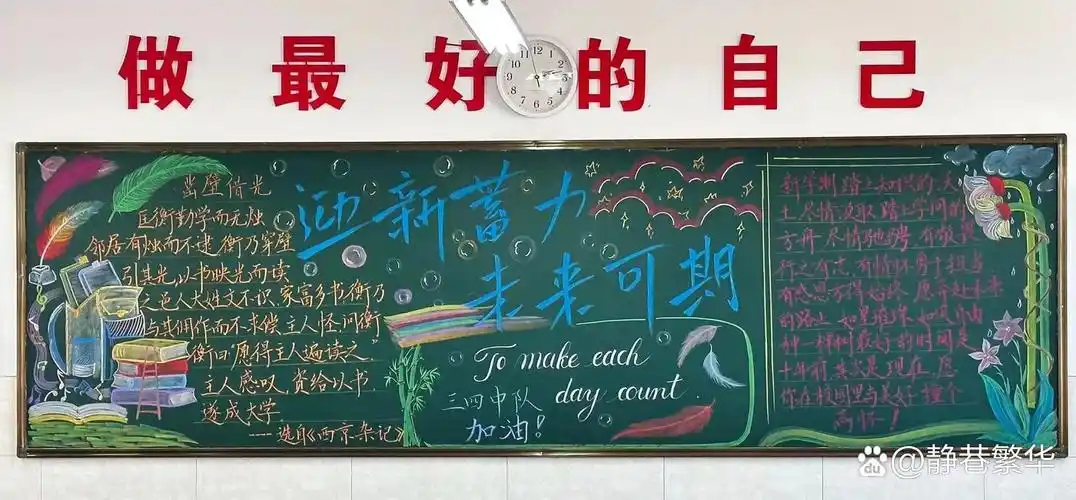 做最好的自己
凿壁借光
匡衡勤学而无烛
邻居有烛而不逮 衡乃穿壁
引其光,以书映光而读
之邑人大姓文不识 家富多书 衡乃
与其佣作而不求偿 主人怪 问衡
衡曰"愿得主人遍读之"
主人感叹 资给以书
遂成大学
---- 选自《西京杂记》
迎新蓄力
未来可期
To make each
day count.
三四中队
加油!
新学期踏上知识的沃
土 尽情汲取 踏上学问的
方舟 尽情驰骋 有敬畏
行之有志 有情怀勇于担当
有感恩方得始终 愿奔赴未来
的路上 如星璀璨 如风自由
种一样树最好的时间是
十年前 其次是现在 愿
你在校园里与美好撞个
高怀!
@静巷繁华